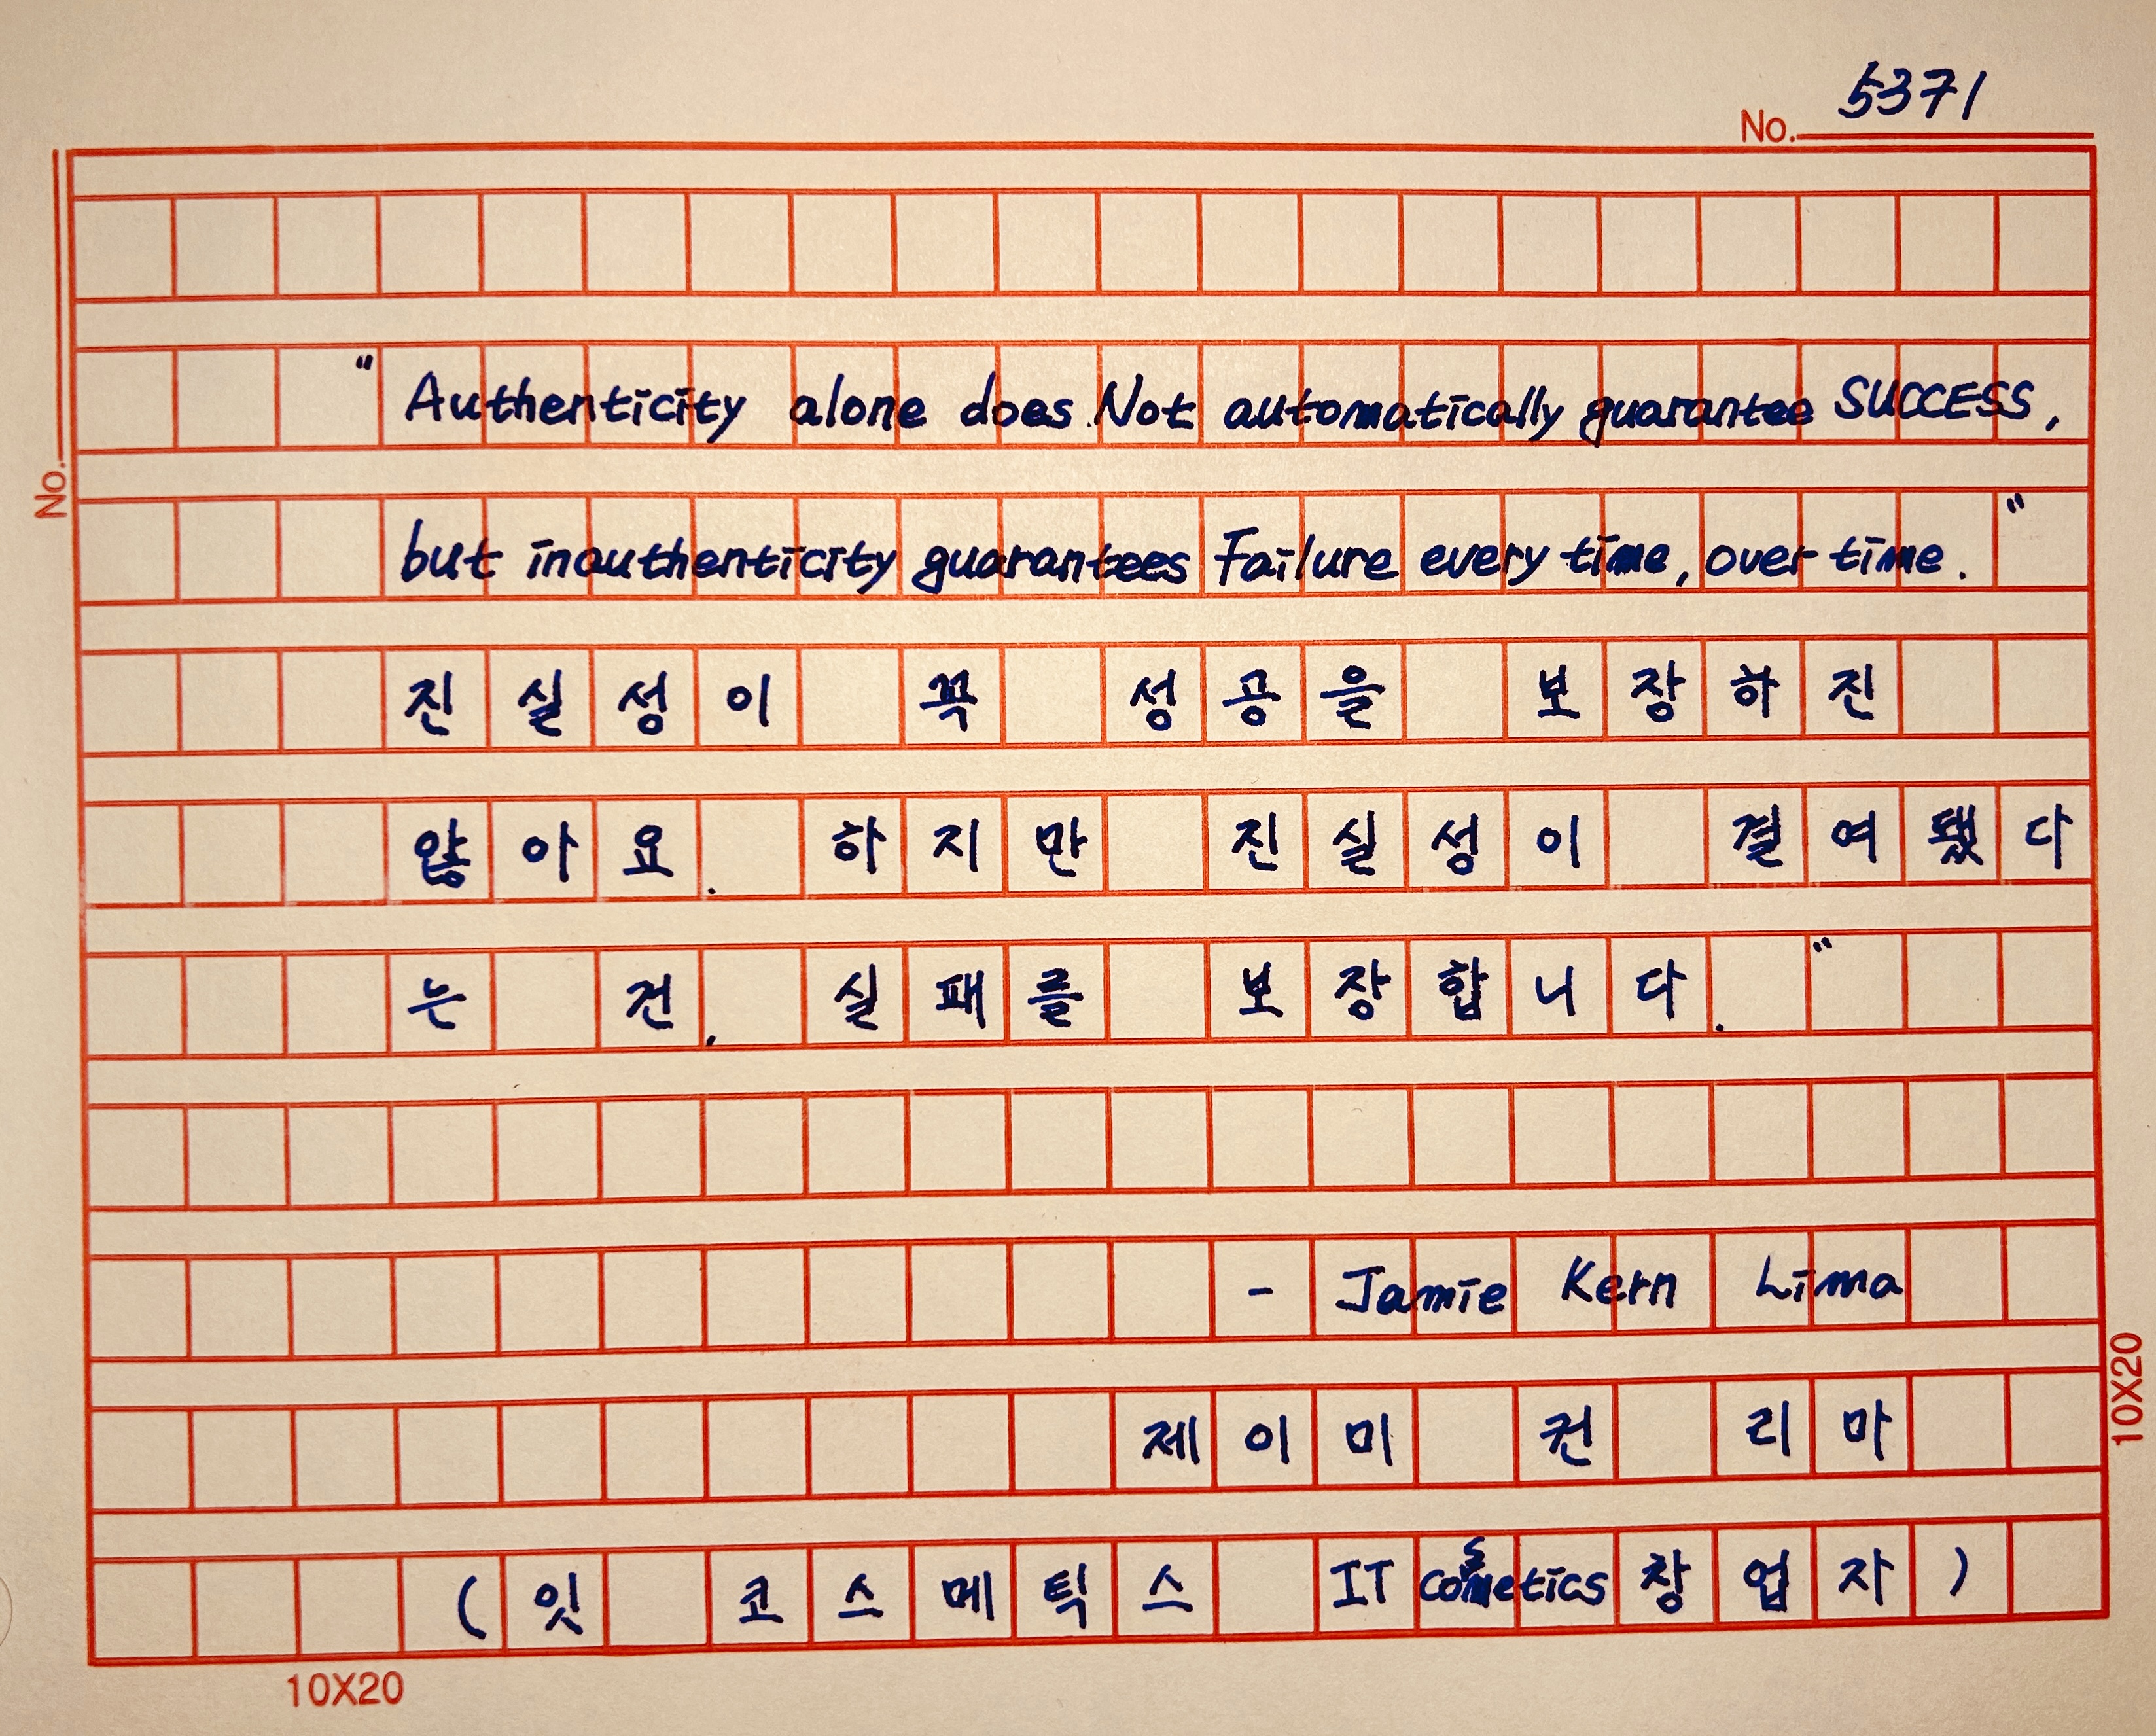 5371
No.
No.
" Authenticity alone does Not automatically guarantee SUCCESS,
but inauthenticity guarantees Failure every time, over time. "
진실성이 꼭 성공을 보장하진
않아요. 하지만 진실성이 결여됐다
는 건. 실패를 보장합니다. "
- Jamie Kern Lima
제이미 컨 리마
(잇 코스메틱스 IT cosmetics 창업자)
10X20
10X20